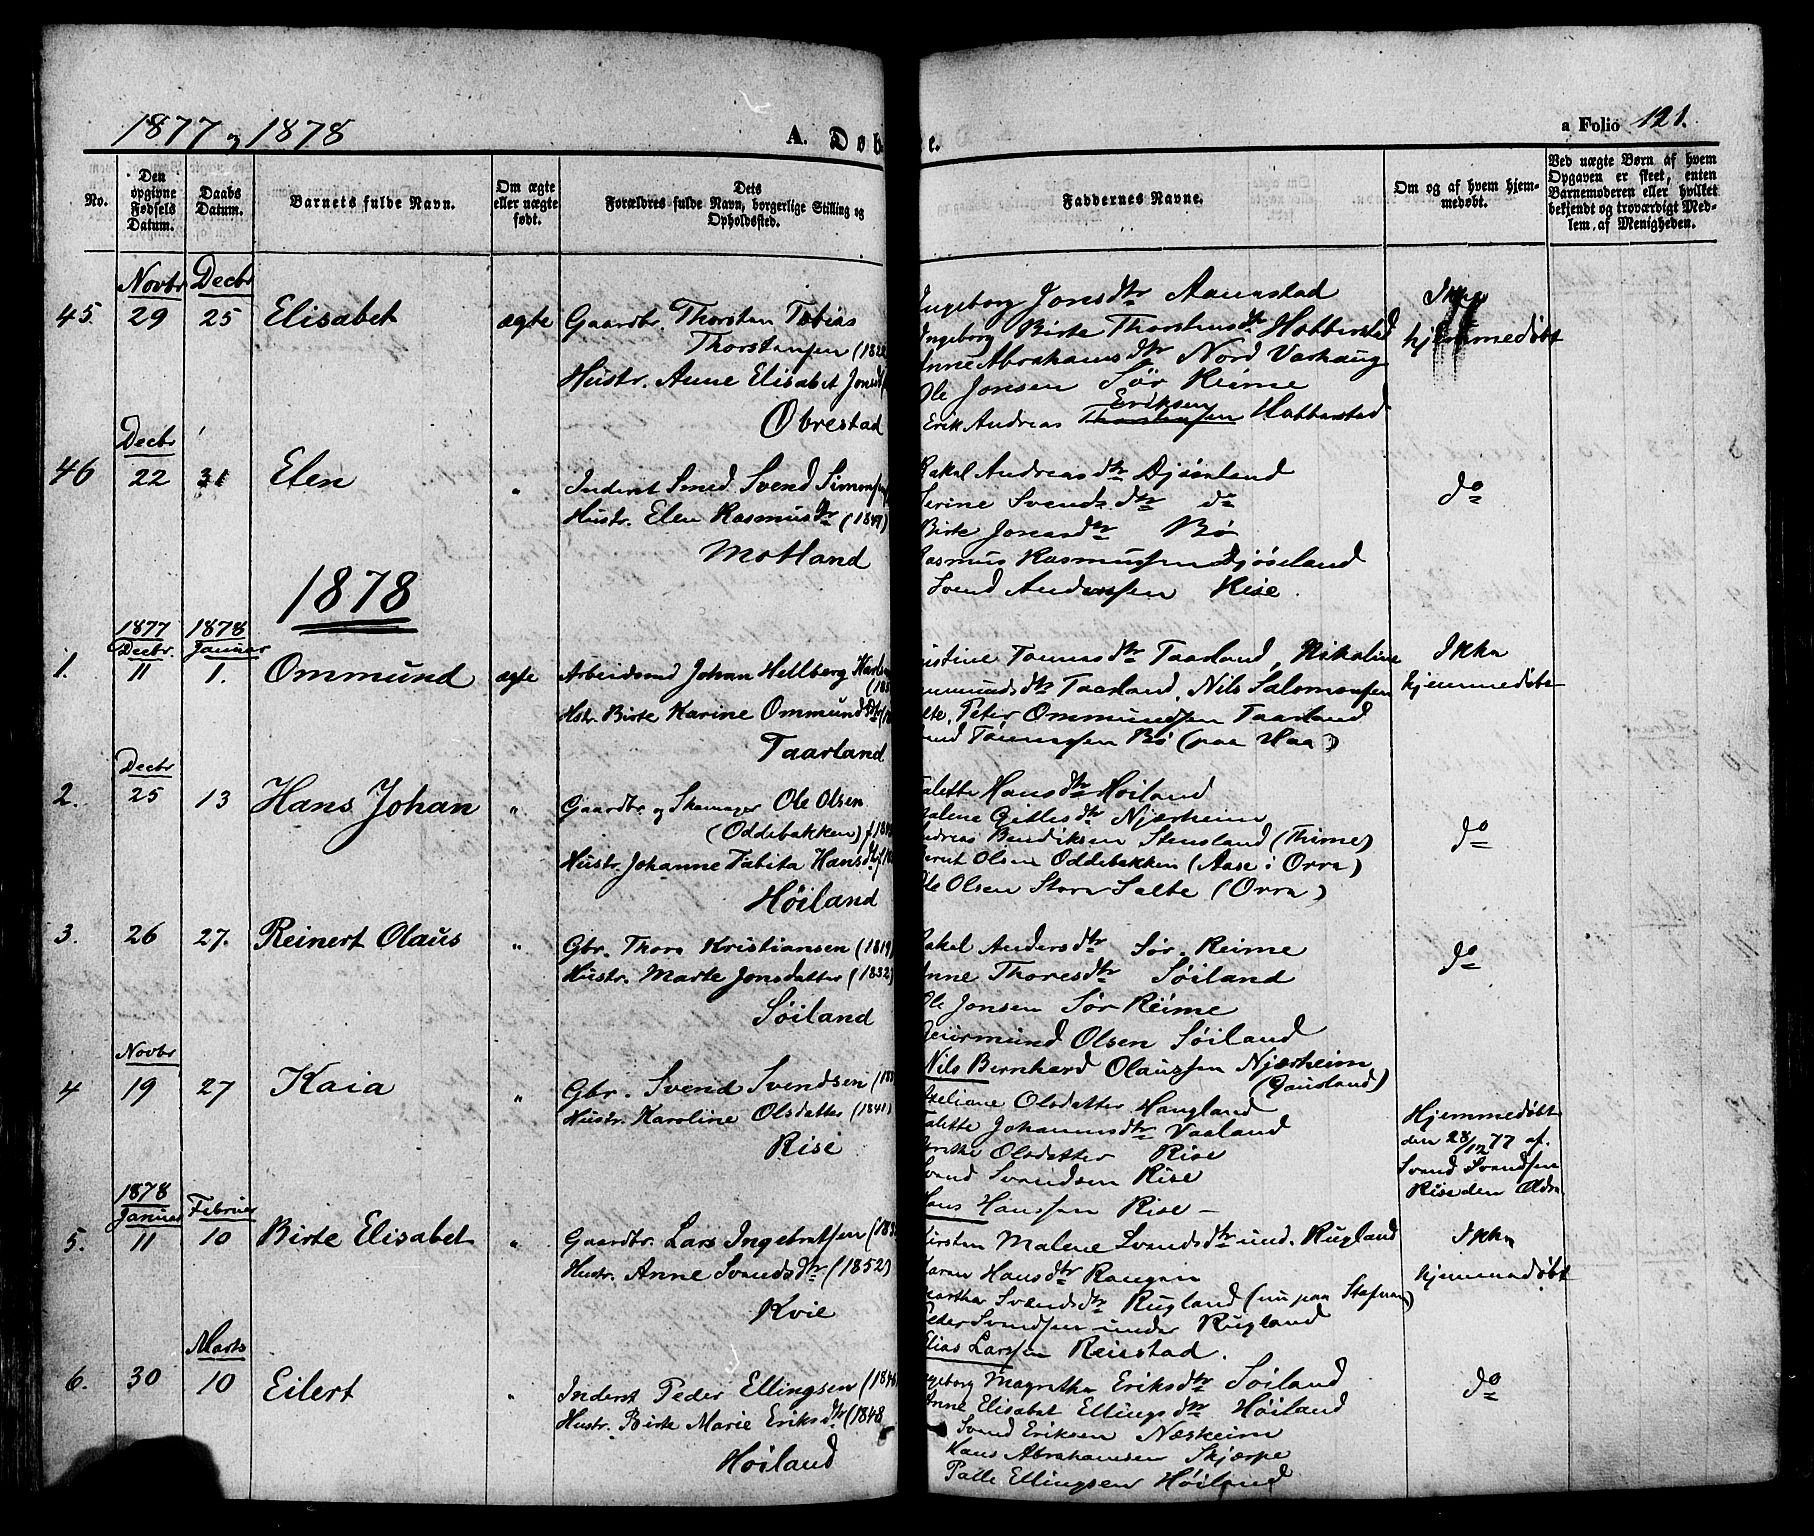 1877 og 1878
A. Døb
e.
a Folio 121.
No.
Den opgivne Fødsels Datum.
Daabs Datum.
Barnets fulde Navn.
Om ægte eller uægte født.
Dets Forældres fulde Navn, borgerlige Stilling og Opholdssted.
Faddernes Navne.
Om og af hvem hjemmedøbt.
Ved uægte Børn af hvem Opgaven er skeet, enten Barnemoderen eller hvilket bekjendt og troværdigt Medlem af Menigheden.
Novbr Decbr
45. 29 25 Elisabet ægte Gaardbr. Thorsten Tobias
Thorstensen (182
Hustr. Anne Elisabet Jonsd
Obrestad
Ingeborg Jonsdtr Aanestad
Ingeborg Birte Thorstensdtr Hobberstad
Anne Abrahamsdtr Nord Varhaug
Ole Jonsen Sør Reime
Eriksen
Erik Andreas Thorstensen Hobberstad
Ikke
hjemmedøbt
Decbr
46 22 31 Elen " Inderst Smed Svend Simonsen
Hustr. Elen Rasmusdtr (1849
Motland
Rakel Andreasdtr Djøseland
Serine Svendsdtr do
Birte Jonasdtr Bø
Rasmus Rasmussen Djøseland
Svend Anderssen Rise.
do
1878
1877 1878
Decbr. Januar
1. 11 1. Ommund ægte Arbeidsmd Johan Hellberg
Hstr. Birte Karine Ommundsdtr
Taarland
Taarland, Nikoline
mmundsdtr Taarland, Nils Salomonsen
alte, Peter Ommundsen Taarland
Bø (paa Haa)
Ikke
hjemmedøbt
Decbr
2. 25 13 Hans Johan " Gaardbr. og Skomager Ole Olsen
(Oddebakken)
Hustr. Johanne Tabita Hansdtr
Høiland
alette Hansdtr Høiland
Malene Gitlesdtr Njærheim
Andreas Bendiksen Stensland (Thime)
Bernt Olsen Oddebakken (Aase i Orre)
Ole Olsen Store Salte (Orre)
do
3. 26 27. Reinert Olaus " Gbr. Thore Kristiansen (1819)
Hustr. Marte Jonsdatter (1832)
Søiland
Rakel Andersdtr Sør. Reime
Anne Thoresdtr Søiland
Ole Jonsen Sør Reime
Geiermund Olsen Søiland
Nils Bernhard Olaussen Njærheim
(Gausland)
do
Novbr
4 19 27 Kaia " Gbr. Svend Svendsen (183
Hustr. Karoline Olsdatter (1841)
Rise
Olsdatter Haugland
Talette Johannesdtr Vaaland
Olsdatter Rise
Svend Svendsen Rise
Hans Hanssen Rise —
Hjemmedøbt
den 28/12 77 af
Svend Svendsen
Rise den Ældre
1878
Januar Februar
5. 11 10 Birte Elisabet " Gaardbr. Lars Ingebretsen (183
Hustr. Anne Svendsdtr (1852)
Kvie
Kirsten Malene Svendsdtr und. Rugland
Karen Hansdtr Rangen
Martha Svendsdtr Rugland (nu paa Stefnem)
Peter Svendsen under Rugland
Elias Larssen Reiestad.
Ikke
hjemmedøbt
Marts
6. 30 10 Eilert " Inderst Peder Ellingsen (184
Hustr. Birte Marie Eriksdtr (1848
Høiland
Ingeborg Magrethe Eriksdtr Søiland
Anne Elisabet Ellingsdtr Høiland
Svend Eriksen Næsheim
Hans Abrahamsen Skjærpe
Palle Ellingsen Høiland
do